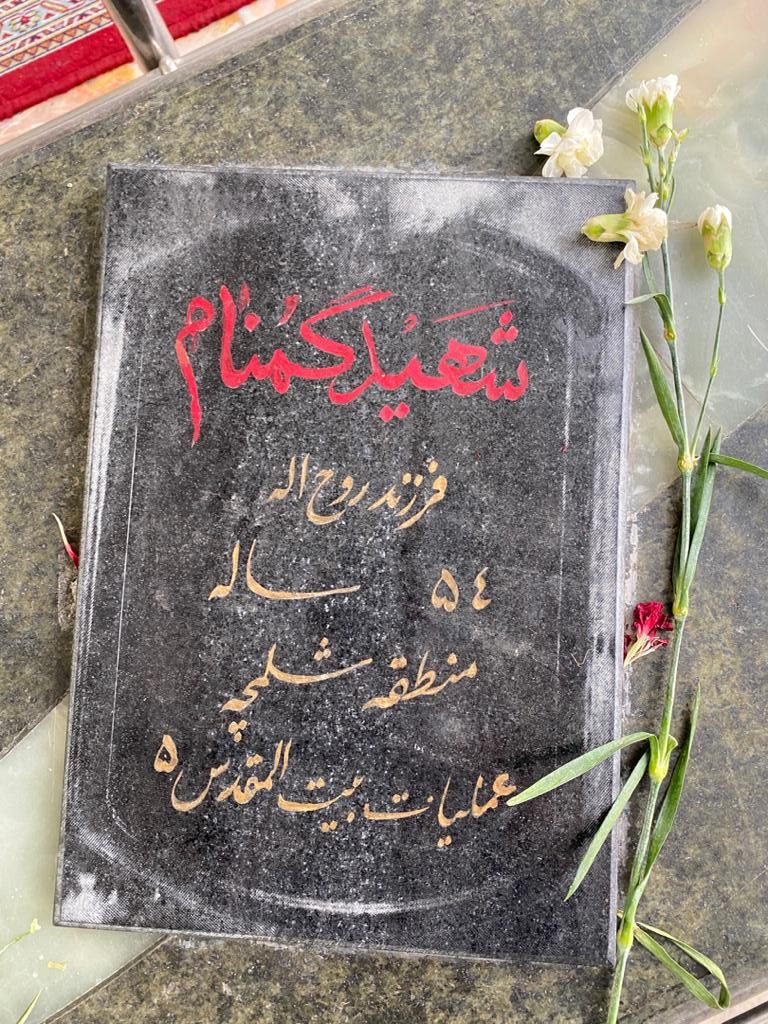 شهید گمنام
فرزند روح اله
٥٤ ساله
منطقه شلمچه
عملیات بیت المقدس ٥